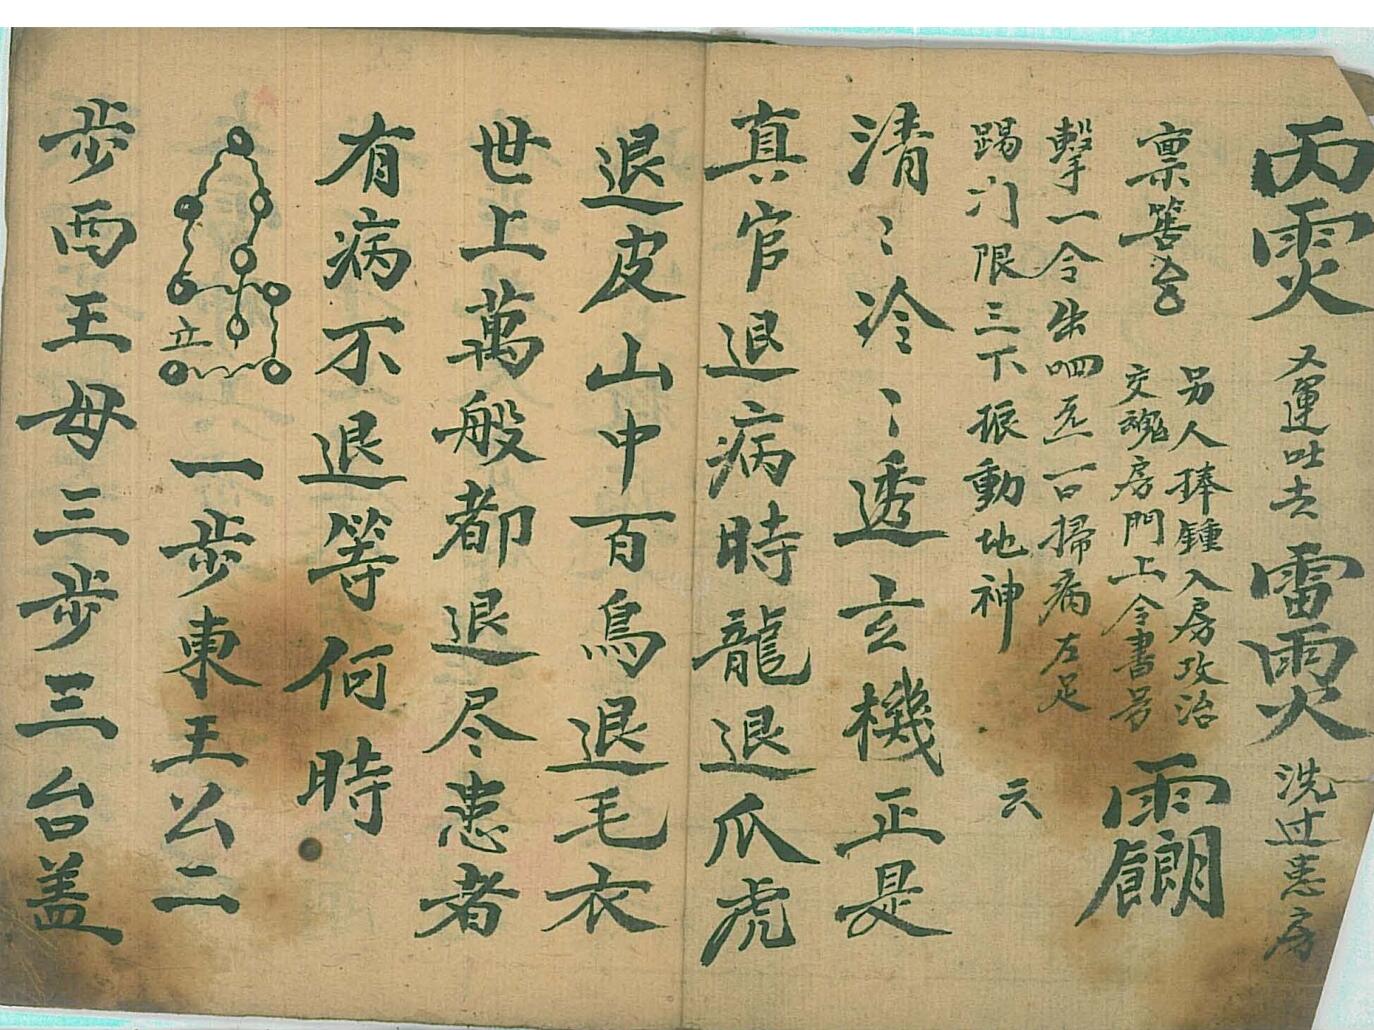 丙䨏又運吐去雷䨏洗过患房
禀筶
另人捧鍾入房攻治
交魂房門上令書号
擊一令出四咒一口掃病左足
踢门限三下振動地神
云
清〻冷〻透玄機正是
真官退病時龍退爪虎
退皮山中百鳥退毛衣
世上萬般都退尽患者
有病不退等何時
立
一步東王公二
步西王母三步三台盖